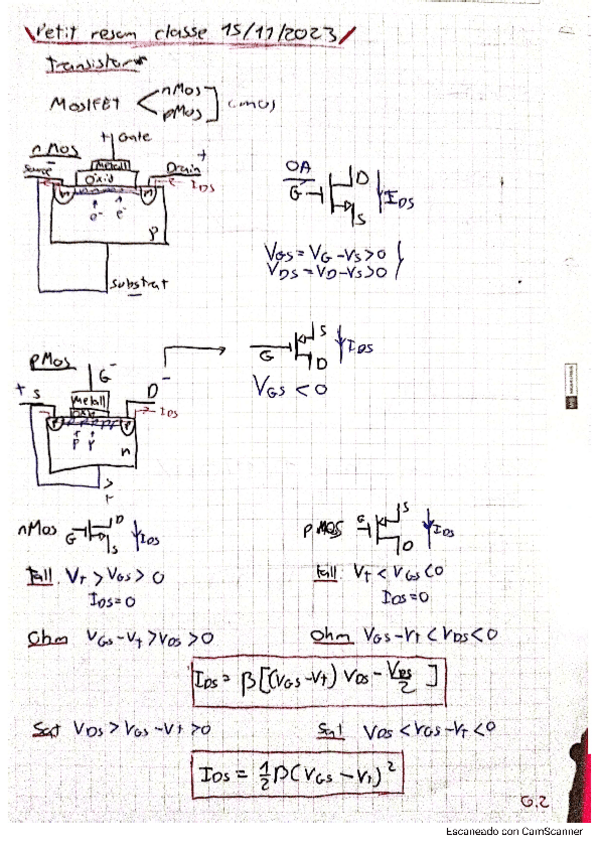 Petit resum classe 15/11/2023
Transistor
MOSFET nMos
pMos
CMOS
nMos
Gate
Source
Metall
Drain +
Oxid
n n
IDS
e- e-
P
Substrat
0A
G
D
S
IDS
VGS = VG - VS > 0
VDS = VD - VS > 0
pMos
G-
+ S
Metall
D-
IDS
P P
P P
n
G
S
D
IDS
VGS < 0
nMos G D S IDS
pMOS G S D IDS
Tall VT > VGS > 0
IDS = 0
Tall VT < VGS < 0
IDS = 0
Ohm VGS - VT > VDS > 0
Ohm VGS - VT < VDS < 0
IDS = β[(VGS - VT) VDS - VDS/2 ]
Sat VDS > VGS - VT > 0
Sat VDS < VGS - VT < 0
IDS = 1/2 β(VGS - VT)²
6.2
Escaneado con CamScanner